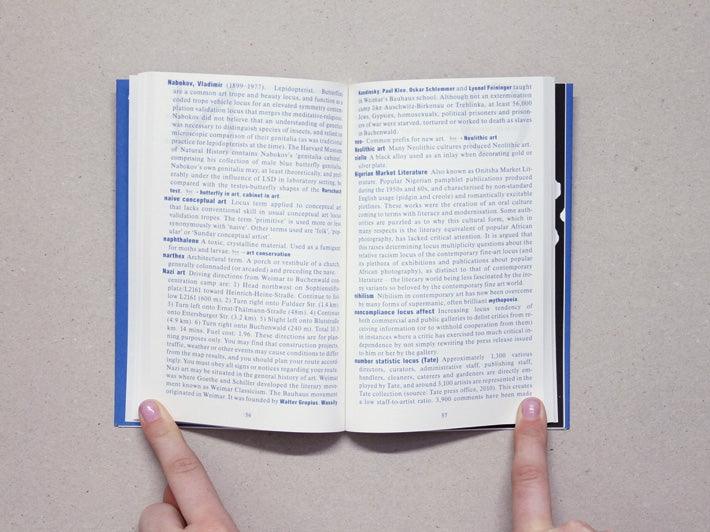 Nabokov, Vladimir (1899-1977). Lepidopterist. Butterflies
are a common art trope and beauty locus, and function as a
coded trope vehicle locus for an elevated symmetry contem-
plation validation locus that merges the meditative-religious.
Nabokov did not believe that an understanding of genetics
was necessary to distinguish species of insects, and relied on
microscopic comparison of their genitalia (as was traditional
practice for lepidopterists at the time). The Harvard Museum
of Natural History contains Nabokov's 'genitalia cabinet',
comprising his collection of male blue butterfly genitalia.
Nabokov's own genitalia may, at least theoretically, and pref-
erably under the influence of LSD in laboratory setting, be
compared with the testes-butterfly shapes of the Rorschach
test. by → butterfly in art, cabinet in art
naive conceptual art Locus term applied to conceptual art
that lacks conventional skill in usual conceptual art locus
validation tropes. The term 'primitive' is used more or less
synonymously with 'naive'. Other terms used are 'folk', 'pop-
ular' or 'Sunday conceptual artist'.
naphthalene A toxic, crystalline material. Used as a fumigant
for moths and larvae. by → art conservation
narthex Architectural term. A porch or vestibule of a church,
generally colonnaded (or arcaded) and preceding the nave.
Nazi art Driving directions from Weimar to Buchenwald con-
centration camp are: 1) Head northwest on Sophienstifts-
platz/L2161 toward Heinrich-Heine-Straße. Continue to fol-
low L2161 (600 m). 2) Turn right onto Fuldaer Str. (1.4 km).
3) Turn left onto Ernst-Thälmann-Straße (48m). 4) Continue
onto Ettersburger Str. (3.2 km). 5) Slight left onto Blutstraße
(4.9 km). 6) Turn right onto Buchenwald (240 m). Total 10.3
km. 14 mins. Fuel cost: 1.96. These directions are for plan-
ning purposes only. You may find that construction projects,
traffic, weather or other events may cause conditions to differ
from the map results, and you should plan your route accord-
ingly. You must obey all signs or notices regarding your route.
Nazi art may be situated in the general history of art. Weimar
was where Goethe and Schiller developed the literary move-
ment known as Weimar Classicism. The Bauhaus movement
originated in Weimar. It was founded by Walter Gropius. Wassily
56
Kandinsky, Paul Klee, Oskar Schlemmer and Lyonel Feininger taught
in Weimar's Bauhaus school. Although not an extermination
camp like Auschwitz-Birkenau or Treblinka, at least 56,000
Jews, Gypsies, homosexuals, political prisoners and prison-
ers of war were starved, tortured or worked to death as slaves
in Buchenwald.
neo- Common prefix for new art. by → Neolithic art
Neolithic art Many Neolithic cultures produced Neolithic art.
niello A black alloy used as an inlay when decorating gold or
silver plate.
Nigerian Market Literature Also known as Onitsha Market Lit-
erature. Popular Nigerian pamphlet publications produced
during the 1950s and 60s, and characterised by non-standard
English usage (pidgin and creole) and romantically excitable
plotlines. These works were the creation of an oral culture
coming to terms with literacy and modernisation. Some auth-
orities are puzzled as to why this cultural form, which in
many respects is the literary equivalent of popular African
photography, has lacked critical attention. It is argued that
this raises determining locus multiplicity questions about the
relative racism locus of the contemporary fine-art locus (and
its plethora of exhibitions and publications about popular
African photography), as distinct to that of contemporary
literature – the literary world being less fascinated by the iro-
ny variants so beloved by the contemporary fine art world.
nihilism Nihilism in contemporary art has now been overcome
by many forms of supermanic, often brilliant mythopoeia.
noncompliance locus affect Increasing locus tendency of
both commercial and public galleries to delist critics from re-
ceiving information (or to withhold cooperation from them)
in instances where a critic has exercised too much critical in-
dependence by not simply rewriting the press release issued
to him or her by the gallery.
number statistic locus (Tate) Approximately 1,300 various
directors, curators, administrative staff, publishing staff,
handlers, cleaners, caterers and gardeners are directly em-
ployed by Tate, and around 3,100 artists are represented in the
Tate collection (source: Tate press office, 2010). This creates
a low staff-to-artist ratio. 3,900 comments have been made
57